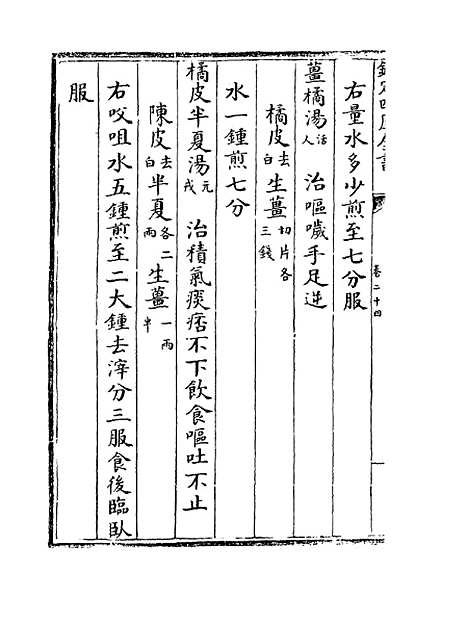 欽定四庫全書
卷二十四
右量水多少煎至七分服
薑橘湯活人 治嘔噦手足逆
橘皮去白 生薑切片各三錢
水一鍾煎七分
橘皮半夏湯元戎 治積氣痰痞不下飲食嘔吐不止
陳皮去白 半夏各二兩 生薑一兩半
右㕮咀水五鍾煎至二大鍾去滓分三服食後臨臥
服